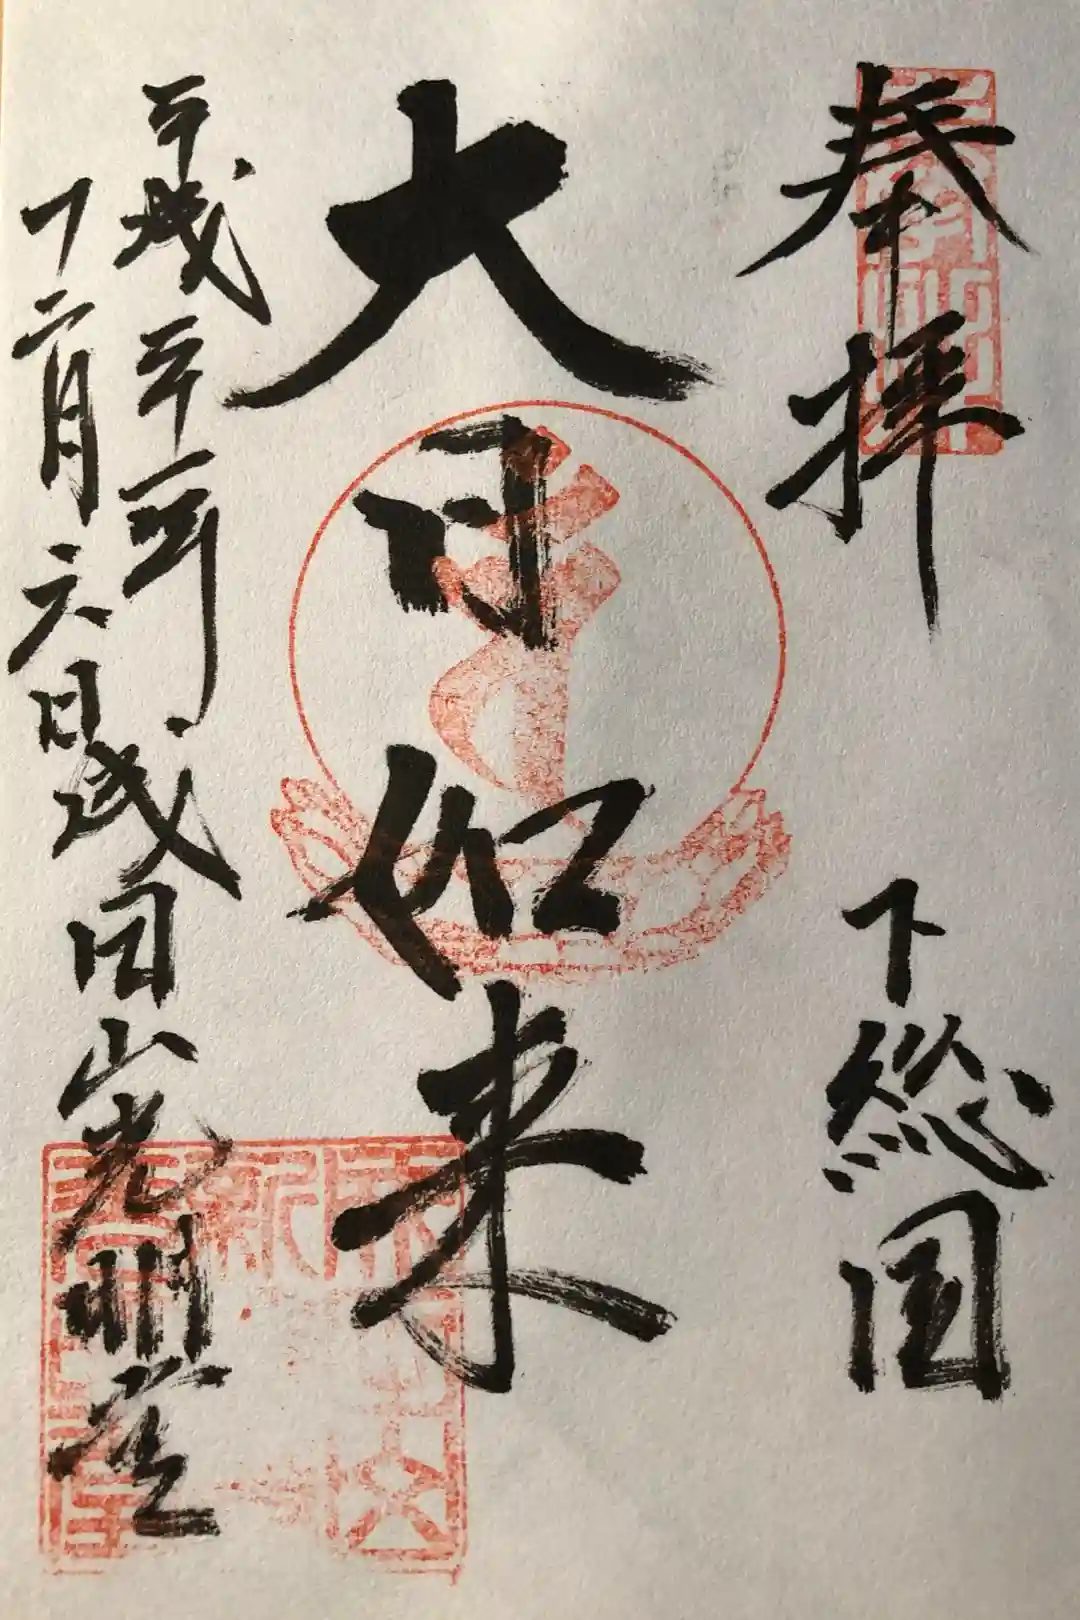 奉拝 下総国
大日如来
平成三十年
十二月六日 成田山光明堂